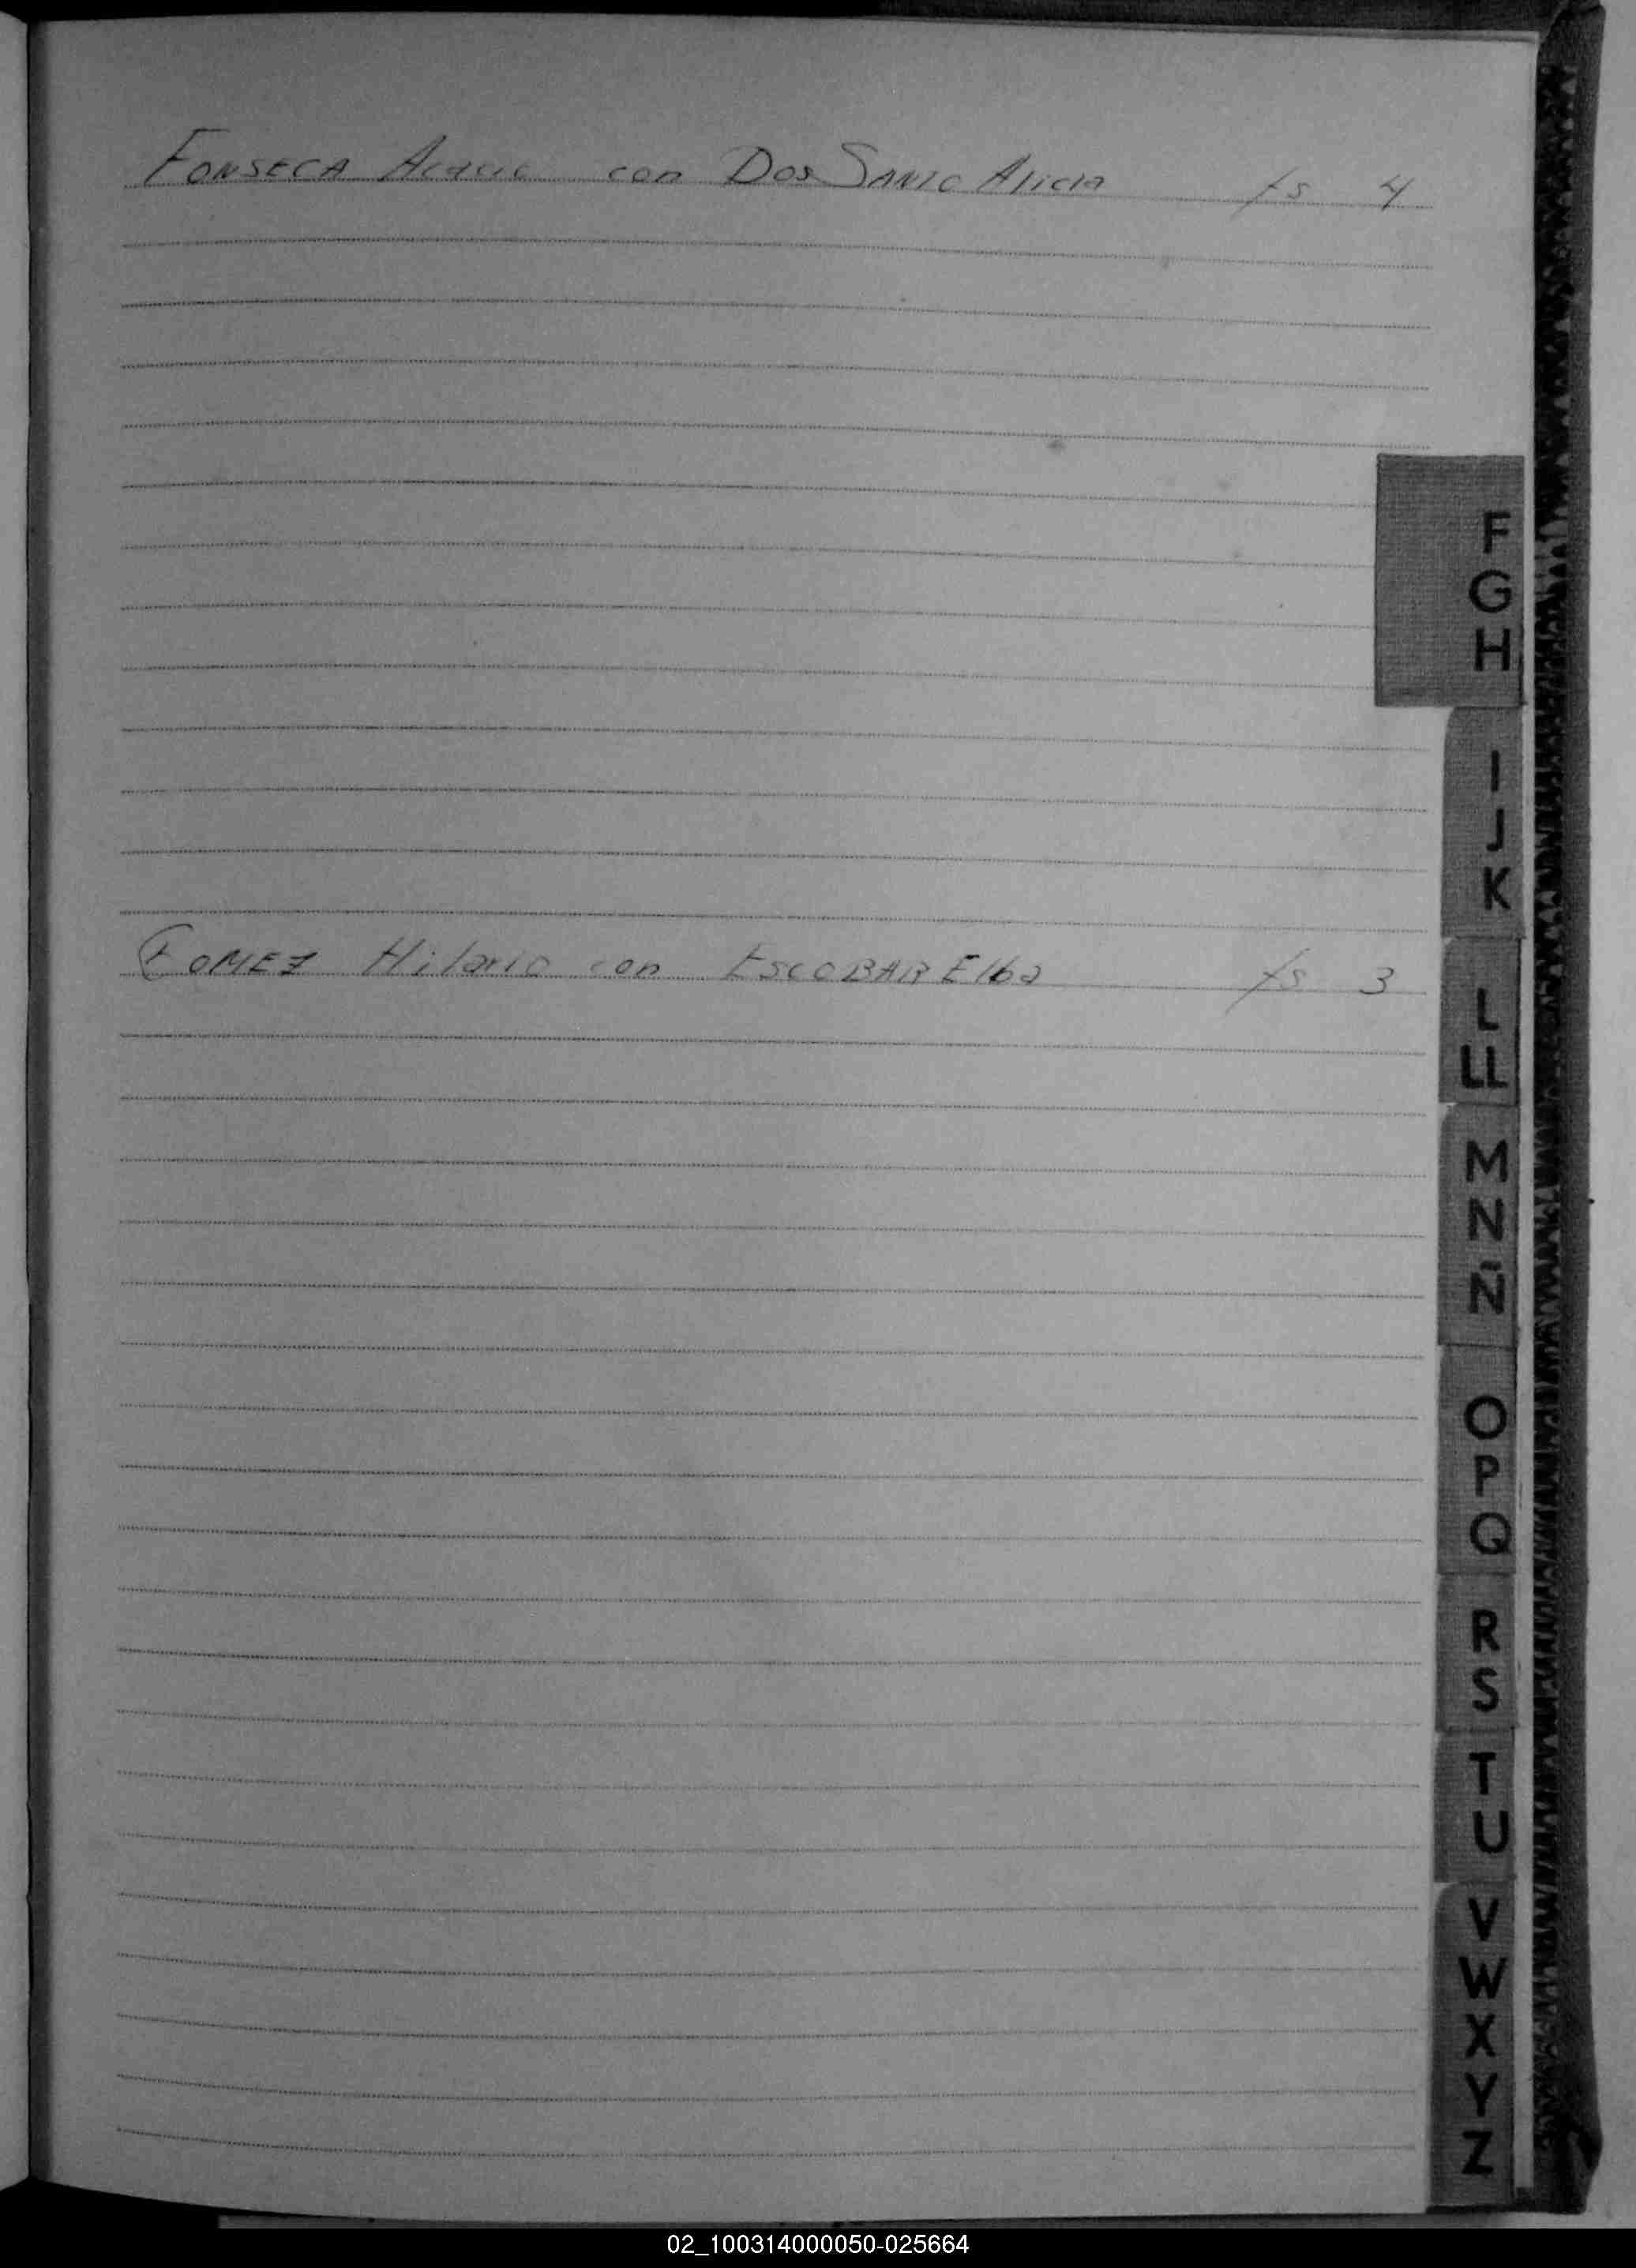 FONSECA Acacio con DOS SANTO Alicia fs 4
GOMEZ Hilario con ESCOBAR Elba fs 3
F
G
H
I
J
K
L
LL
M
N
Ñ
O
P
Q
R
S
T
U
V
W
X
Y
Z
02_100314000050-025664